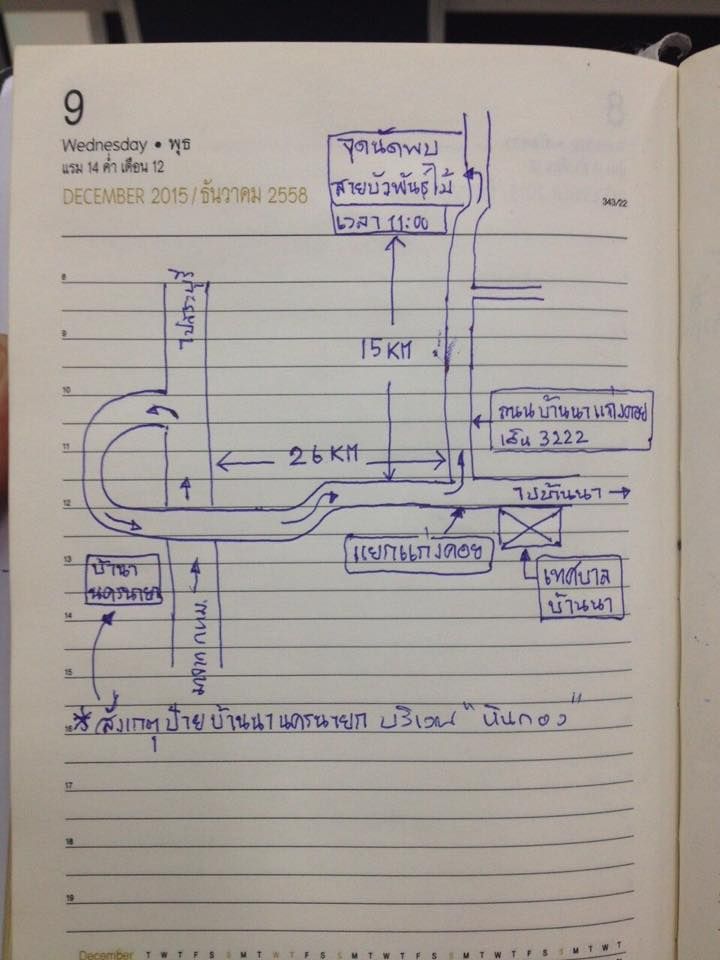 9
Wednesday • พุธ
แรม 14 ค่ำ เดือน 12
DECEMBER 2015 / ธันวาคม 2558
343/22
จุดนัดพบ
สายบัวพันธุ์ไม้
เวลา 11:00
ไปสระบุรี
15 KM
ถนนบ้านนา แก่งคอย
เส้น 3222
26 KM
ไปบ้านนา
แยกแก่งคอย
เทศบาล
บ้านนา
บ้านา
นครนายก
มาจาก กทม.
* สังเกตุป้ายบ้านนา นครนายก บริเวณ "หินกอง"
8
9
10
11
12
13
14
15
16
17
18
19
December T W T F S S M T W T F S S M T W T F S S M T W T F S S M T W T